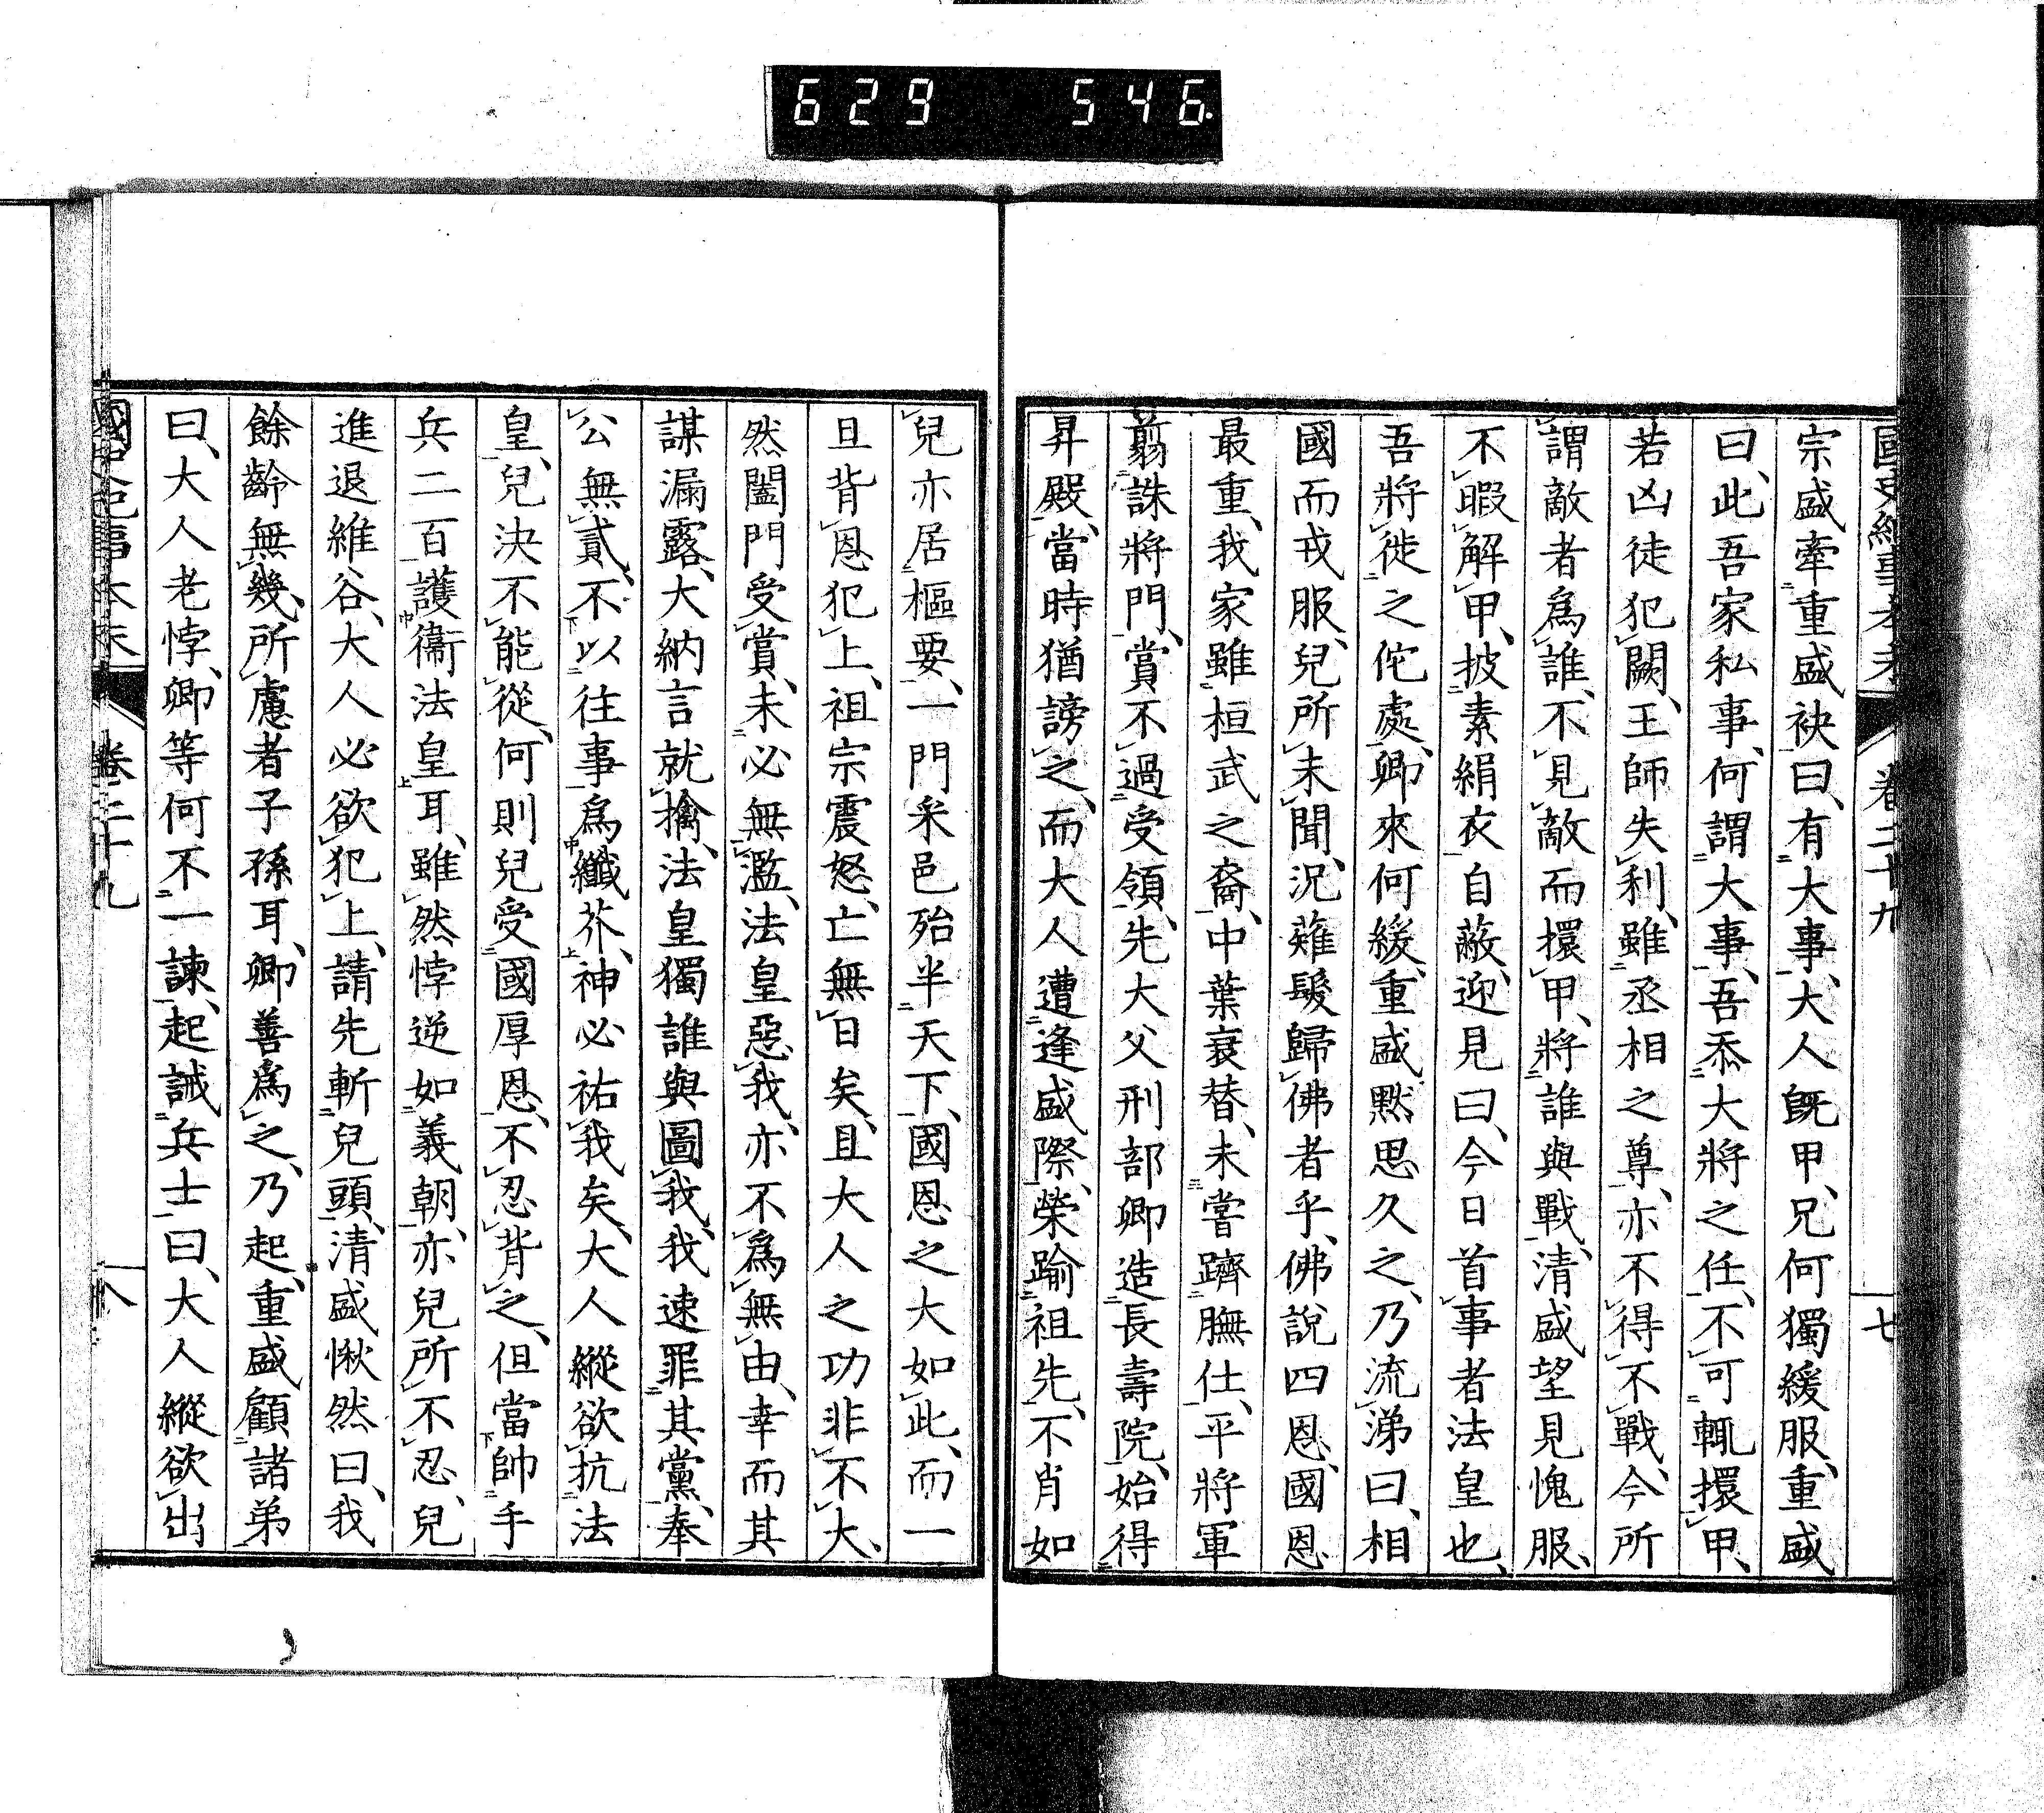 629 546.
國史紀事本末 卷二十九 七
宗盛牽重盛袂曰、有大事、大人既甲、兄何獨緩服、重盛
曰、此吾家私事、何謂大事、吾忝大將之任、不可輒擐甲、
若凶徒犯闕、王師失利、雖丞相之尊、亦不得不戰、今所
謂敵者爲誰、不見敵而擐甲、將誰與戰、清盛望見愧服、
不暇解甲、披素絹衣自蔽、迎見曰、今日首事者法皇也、
吾將徙之佗處、卿來何緩、重盛默思久之、乃流涕曰、相
國而戎服、兒所未聞、況薙髮歸佛者乎、佛說四恩、國恩
最重、我家雖桓武之裔、中葉衰替、未嘗躋膴仕、平將軍
翦誅將門、賞不過受領、先大父刑部卿造長壽院、始得
昇殿、當時猶謗之、而大人遭逢盛際、榮踰祖先、不肖如
兒亦居樞要、一門采邑殆半天下、國恩之大如此、而一
旦背恩犯上、祖宗震怒、亡無日矣、且大人之功非不大、
然闔門受賞、未必無濫、法皇惡我、亦不爲無由、幸而其
謀漏露、大納言就擒、法皇獨誰與圖我、我速罪其黨、奉
公無貳、不以往事爲纖芥、神必祐我矣、大人縱欲抗法
皇、兒決不能從、何則兒受國厚恩、不忍背之、但當帥手
兵二百護衞法皇耳、雖然悖逆如義朝、亦兒所不忍、兒
進退維谷、大人必欲犯上、請先斬兒頭、清盛愀然曰、我
餘齡無幾、所慮者子孫耳、卿善爲之、乃起、重盛顧諸弟
曰、大人老悖、卿等何不一諫、起誡兵士曰、大人縱欲出
國史紀事本末 卷二十九 八